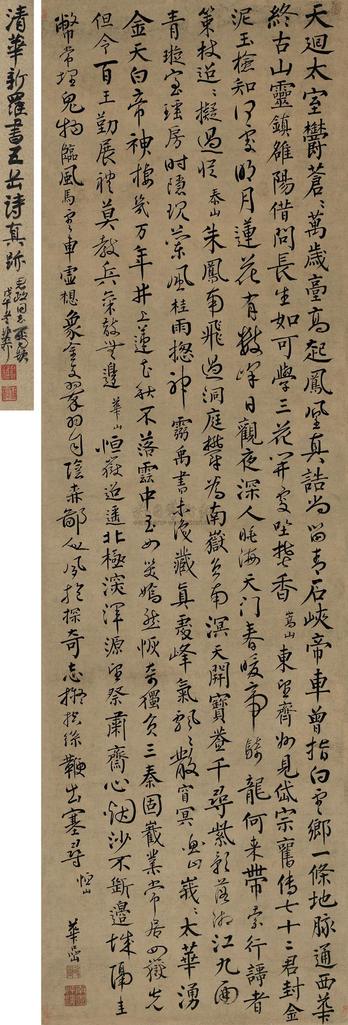 天迴太室鬱蒼蒼萬歲臺高起鳳凰真誥尚留青石峽帝車曾指白雲鄉一條地脉通西華
終古山靈鎮雒陽借問長生如可學三花開處坐焚香 嵩山 東望齊州見岱宗舊傳七十二君封金
泥玉檢知何處明月蓮花有數峰日觀夜深人眺海天門春暖帝騎龍何来帶索行謌者
策杖迢迢擬過從 泰山 朱鳳南飛過洞庭為南嶽負南溟天開寶千尋紫影落湘江九面
青璇室瑤房時隱現蘭風桂雨揔神靈禹書未沒藏真處峰氣飄飄散窅冥 衡山 峩峩太華湧
金天白帝神棲幾萬年井上蓮花秋不落雲中玉女笑嫣然恢奇獨負三秦固業常居四嶽先
但令百王勤展禮莫教兵氣無邊 華山 恒嶽迢遥北極深渾源望祭肅齋心沙不斷邊城隔圭
幣常埋鬼物臨風馬雲車虛想象自陰森鄙人夙抱探奇志擬絲鞭出塞尋 恒山
華嵒
清華新羅書五岳詩真跡